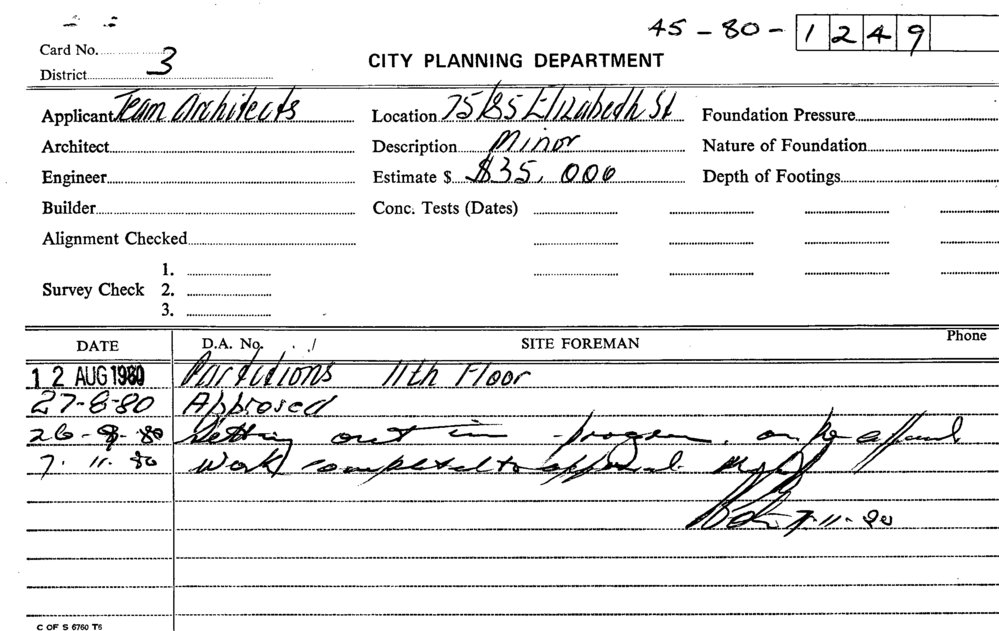 45-80-1249
Card No.
District 3
CITY PLANNING DEPARTMENT
Applicant Team Architects Location 75/85 Elizabeth St Foundation Pressure
Architect Description Minor Nature of Foundation
Engineer Estimate $ $35,000 Depth of Footings
Builder Conc. Tests (Dates)
Alignment Checked
1.
Survey Check 2.
3.
DATE D.A. No. SITE FOREMAN Phone
12 AUG 1980 Partitions 11th Floor
27-8-80 Approved
26-9-80 Setting out in
7.11.80 Work completed to approval
7-11-80
C OF S 6760 T6